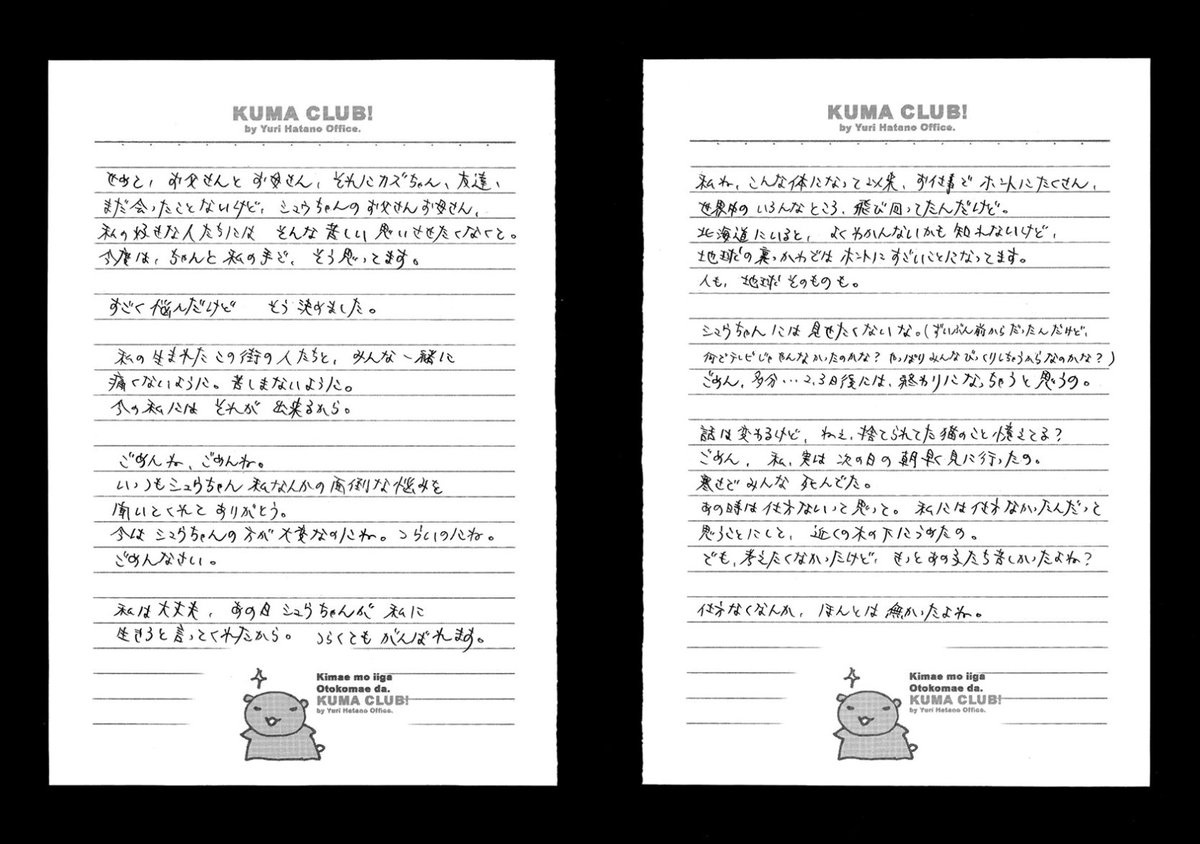 KUMA CLUB!
by Yuri Hatano Office.
私ね、こんな体になって以来、お仕事で ホントにたくさん、
世界中の いろんなところ、飛び回ってたんだけど。
北海道にいると、よくわかんないかも 知れないけど、
地球の裏っかわでは ホントにすごいことになってます。
人も、地球 そのものも。
シュウちゃんには 見せたくないな。(ずいぶん前からだったんだけど、
何でテレビじゃやんなかったのかな? やっぱりみんなびっくりしちゃうからなのかな?)
ごめん、多分・・・2、3日後には、終わりになっちゃうと思うの。
話は変わるけど、ねえ、捨てられてた猫のこと憶えてる?
ごめん、私、実は 次の日の朝早く見に行ったの。
寒さでみんな 死んでた。
あの時は 仕方ないって思って。 私には仕方なかったんだって
思うことにして、近くの木の下にうめたの。
でも、考えたくなかったけど、きっとあの子たち苦しかったよね?
仕方なくなんか、ほんとは無かったよね。
Kimae mo iiga
Otokomae da.
KUMA CLUB!
by Yuri Hatano Office.
KUMA CLUB!
by Yuri Hatano Office.
せめて、お父さんと お母さん、それにカズちゃん、友達、
まだ会ったことないけど、シュウちゃんのお父さんお母さん、
私の好きな人たちには そんな苦しい思いさせたくなくて。
今度は、ちゃんと私の手で、そう思ってます。
すごく悩んだけど そう決めました。
私の生まれたこの街の人たちと、みんな一緒に
痛くないように。苦しまないように。
今の私には それが 出来るから。
ごめんね、ごめんね。
いつもシュウちゃん 私なんかの面倒な悩みを
聞いてくれて ありがとう。
今は シュウちゃんの方が大変なのにね。つらいのにね。
ごめんなさい。
私は大丈夫、あの日シュウちゃんが 私に
生きろと言ってくれたから。 つらくてもがんばれます。
Kimae mo iiga
Otokomae da.
KUMA CLUB!
by Yuri Hatano Office.